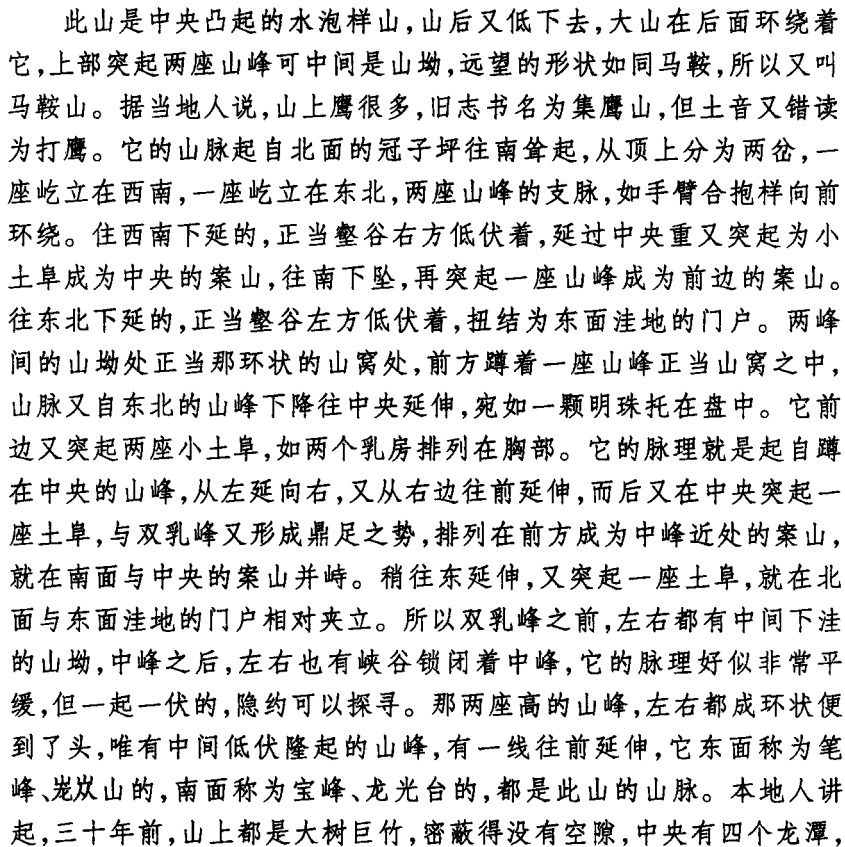 此山是中央凸起的水泡样山,山后又低下去,大山在后面环绕着
它,上部突起两座山峰可中间是山坳,远望的形状如同马鞍,所以又叫
马鞍山。据当地人说,山上鹰很多,旧志书名为集鹰山,但土音又错读
为打鹰。它的山脉起自北面的冠子坪往南耸起,从顶上分为两岔,一
座屹立在西南,一座屹立在东北,两座山峰的支脉,如手臂合抱样向前
环绕。住西南下延的,正当壑谷右方低伏着,延过中央重又突起为小
土阜成为中央的案山,往南下坠,再突起一座山峰成为前边的案山。
往东北下延的,正当壑谷左方低伏着,扭结为东面洼地的门户。两峰
间的山坳处正当那环状的山窝处,前方蹲着一座山峰正当山窝之中,
山脉又自东北的山峰下降往中央延伸,宛如一颗明珠托在盘中。它前
边又突起两座小土阜,如两个乳房排列在胸部。它的脉理就是起自蹲
在中央的山峰,从左延向右,又从右边往前延伸,而后又在中央突起一
座土阜,与双乳峰又形成鼎足之势,排列在前方成为中峰近处的案山,
就在南面与中央的案山并峙。稍往东延伸,又突起一座土阜,就在北
面与东面洼地的门户相对夹立。所以双乳峰之前,左右都有中间下洼
的山坳,中峰之后,左右也有峡谷锁闭着中峰,它的脉理好似非常平
缓,但一起一伏的,隐约可以探寻。那两座高的山峰,左右都成环状便
到了头,唯有中间低伏隆起的山峰,有一线往前延伸,它东面称为笔
峰、山的,南面称为宝峰、龙光台的,都是此山的山脉。本地人讲
起,三十年前,山上都是大树巨竹,密蔽得没有空隙,中央有四个龙潭,